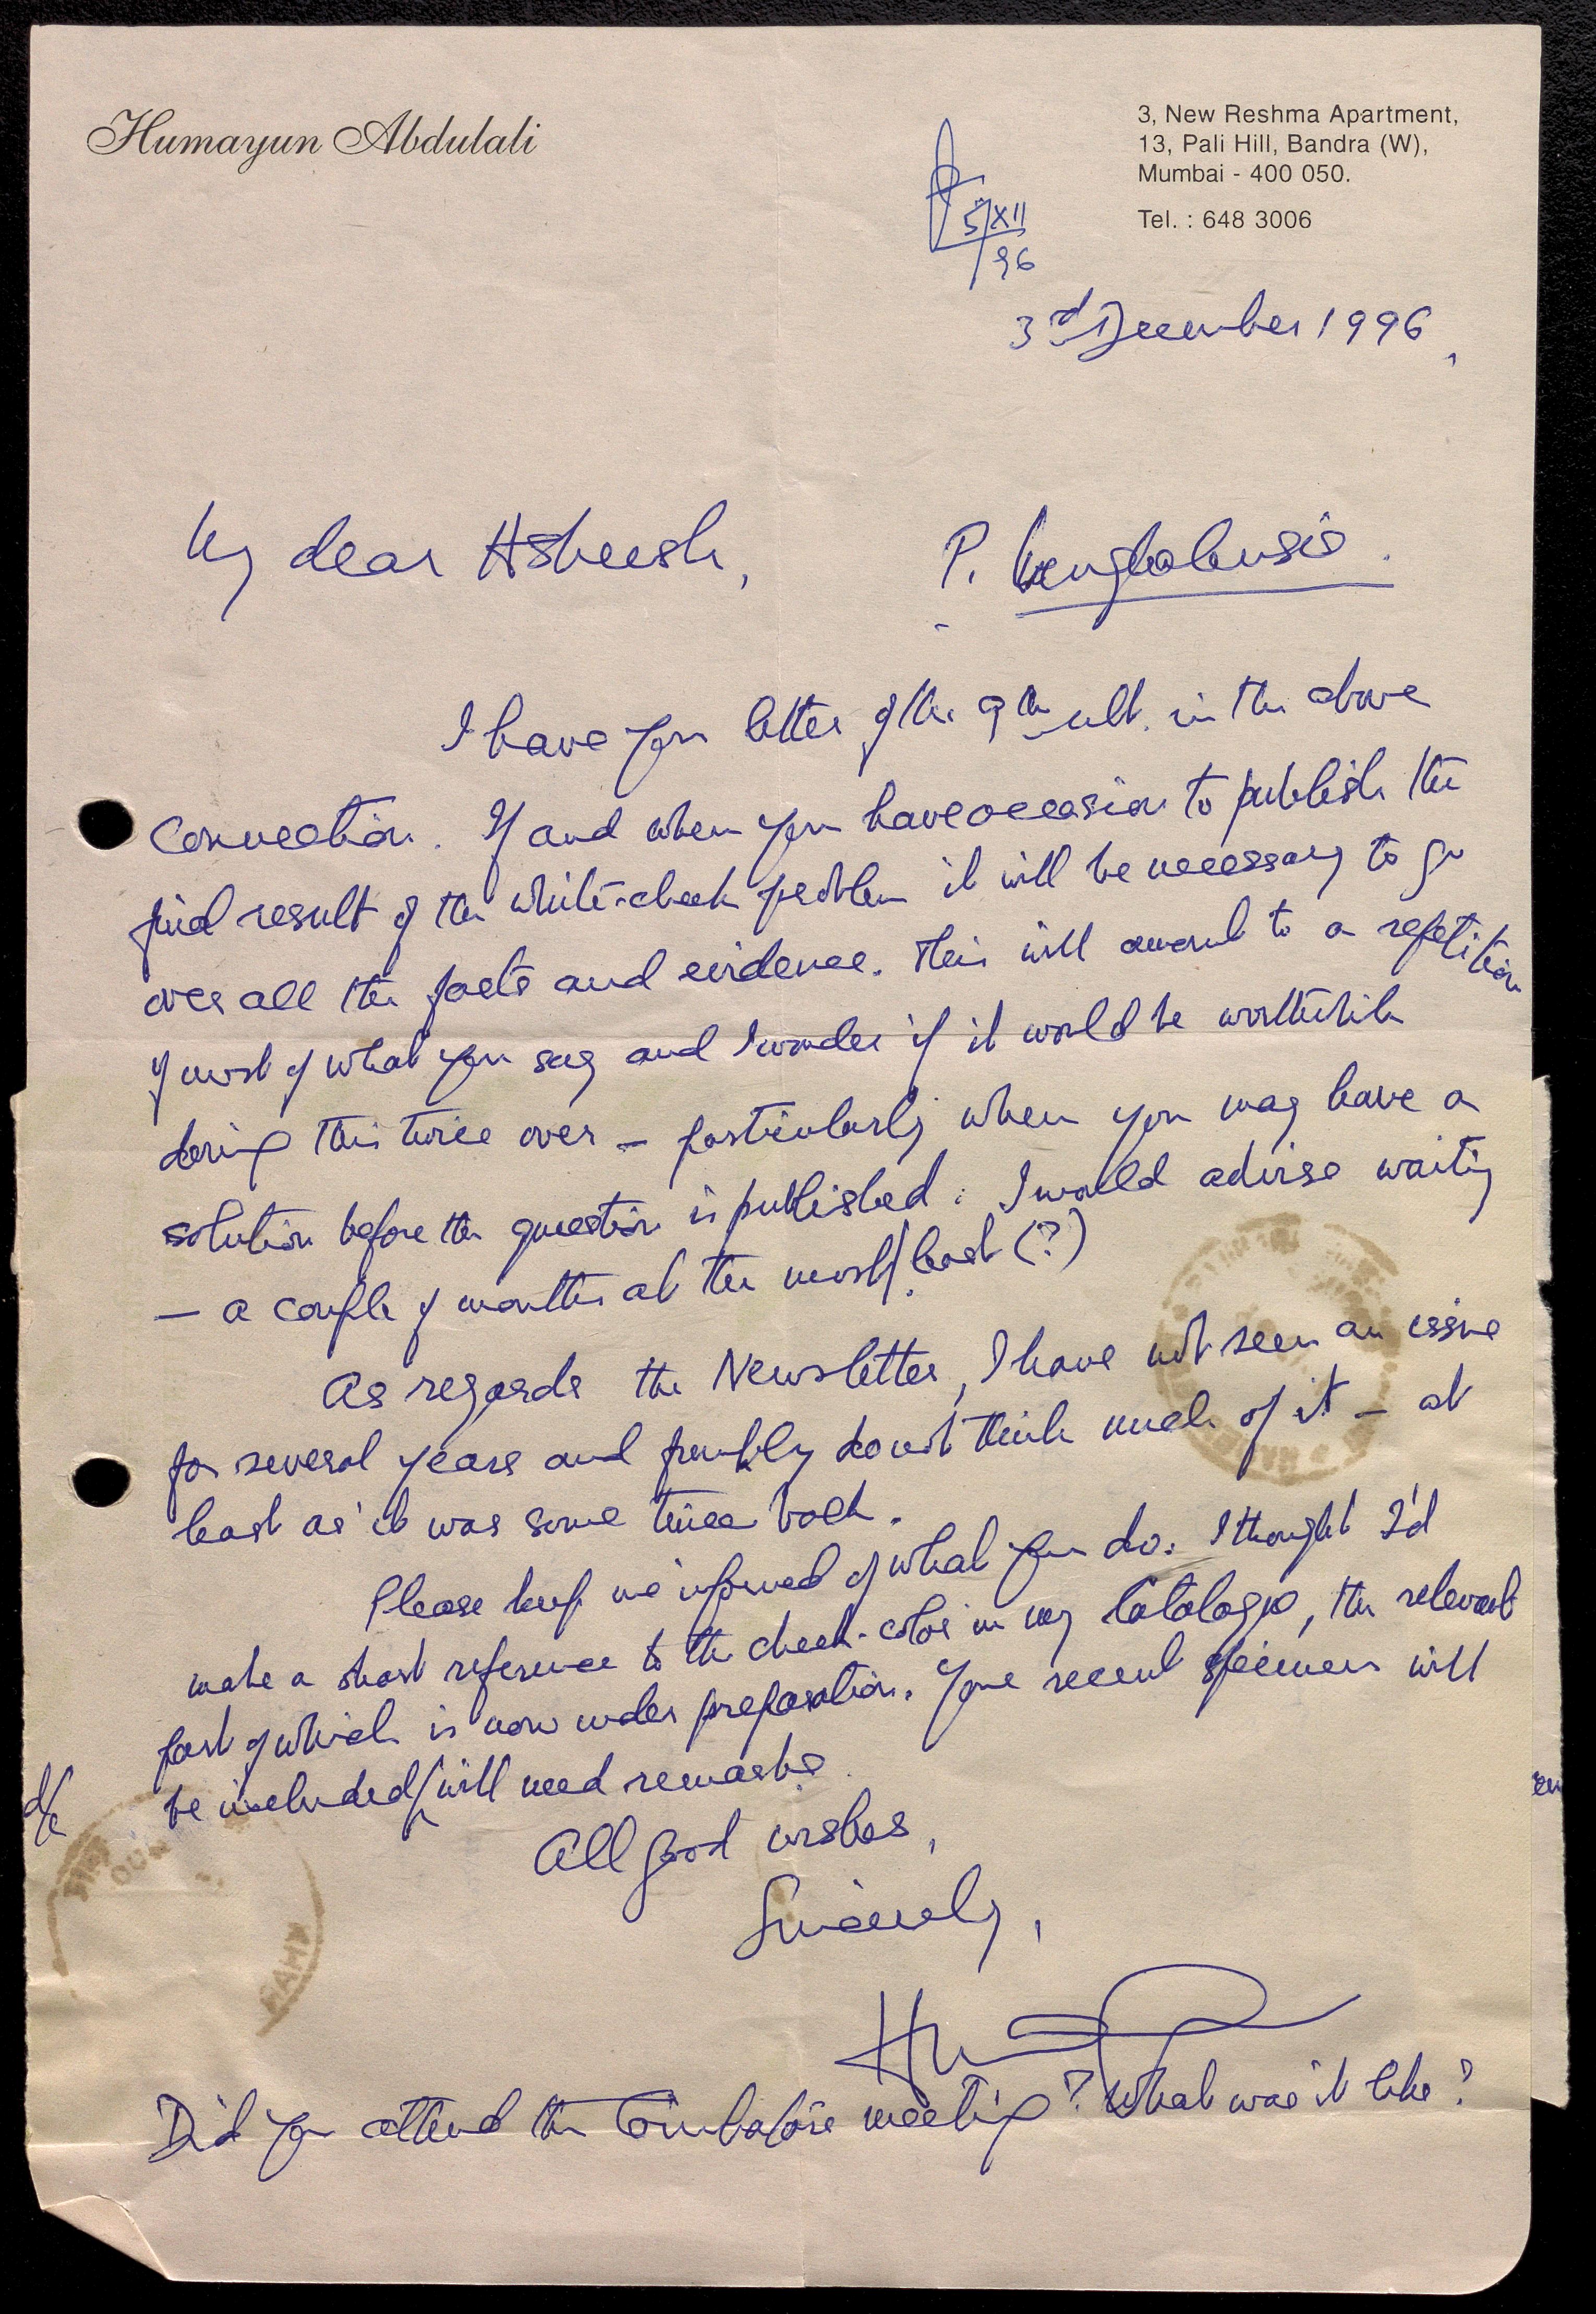 Humayun Abdulali
3, New Reshma Apartment,
13, Pali Hill, Bandra (W),
Mumbai - 400 050.
Tel. : 648 3006
5/XII
96
3rd December 1996,
My dear Asheesh,
P. benghalensis.
I have your letter of the 9th ult. in the above
connection. If and when you have occasion to publish the
final result of the white-cheek problem it will be necessary to go
over all the facts and evidence. This will amount to a repetition
of most of what you say and I wonder if it would be worthwhile
doing this twice over – particularly when you may have a
solution before the question is published. I would advise waiting
– a couple of months at the most/least (?)
As regards the Newsletter, I have not seen an issue
for several years and frankly do not think much of it – at
least as it was some time back.
Please keep me informed of what you do. I thought I'd
make a short reference to the cheek-color in my Catalogue, the relevant
part of which is now under preparation. Your recent specimen will
be included/will need remarks.
All good wishes,
Sincerely,
Did you attend the Coimbatore meeting? What was it like?